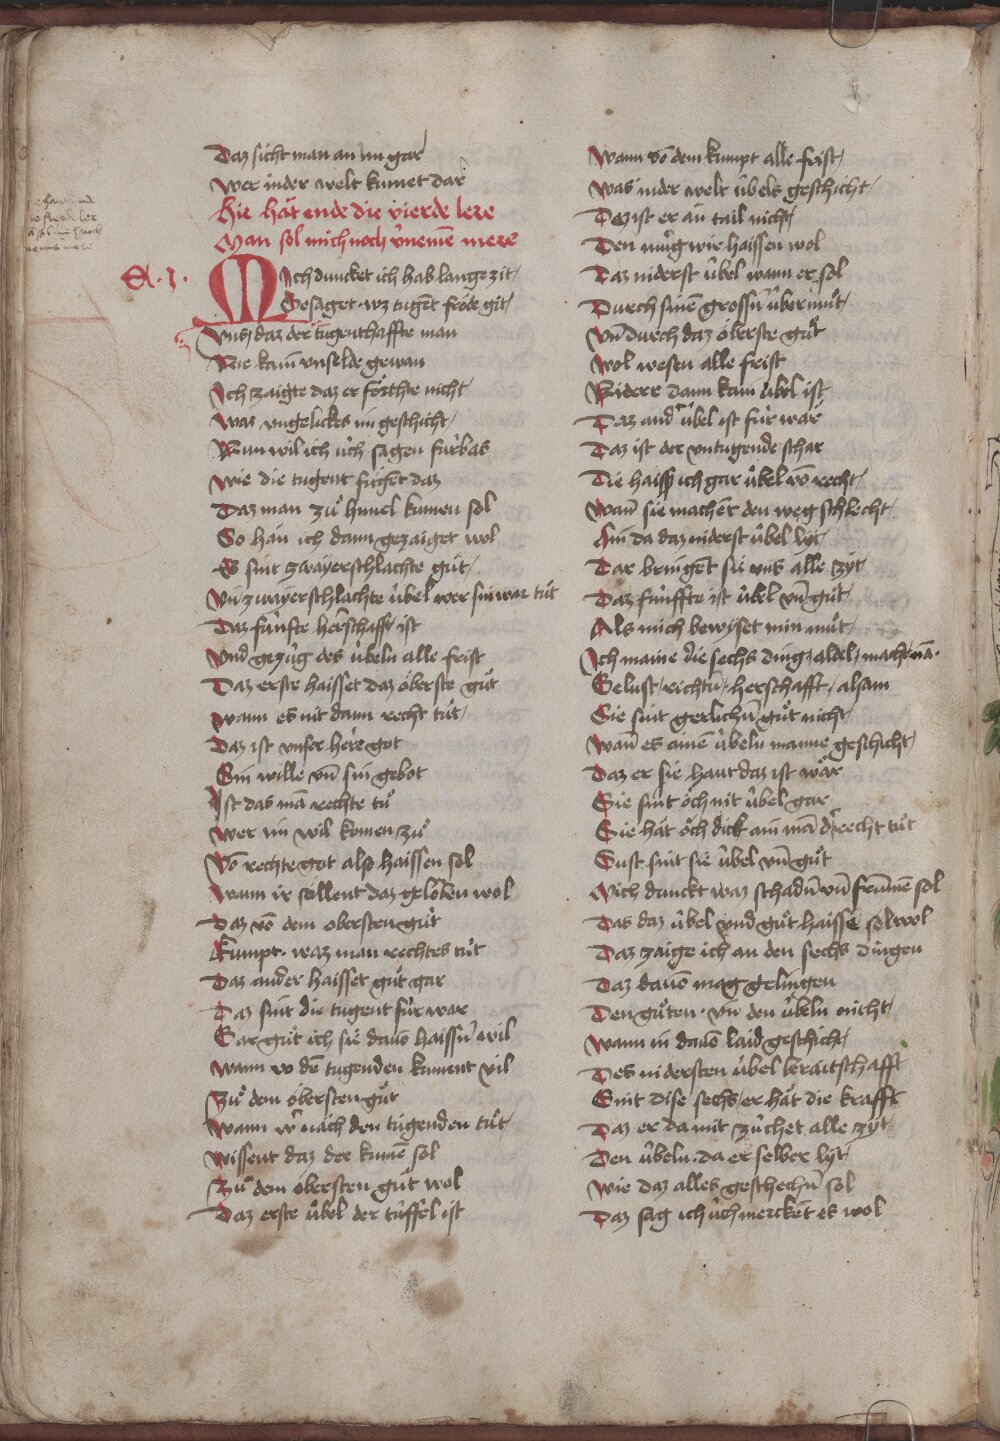 Daz sicht man an im gar
Wer in der welt kumet dar
Hie hät ende die vierde lere
Man sol mich noch v̉nemē mere
A. j.
Mich duncket ich hab lange zit
Gesaget wz tugēt fröde git
Vns daz der tugenthaffte man
Nie kain vnselde gewan
Ich zaigte daz er förchte nicht
Was vngelückes im geschicht
Nun wil ich üch sagen fürbas
Wie die tugent fügēt daz
Daz man zů himel kumen sol
So hän ich dann gezaiget wol
Es sint zwayerschlachte gůt
Vn̄ zwayerschlachte übel wer sin war tůt
Daz fünfte herschafft ist
Vnd gezüg des übeln alle frist
Daz erste haisset daz oberste gůt
Wann es nit dann recht tůt
Daz ist vnser here got
Sin wille vn̄ sin gebot
Ist das mā rechte tů
Wer im wil komen zů
Vō rechte got also haissen sol
Wann ir sollent daz geloben wol
Daz vō dem obersten gůt
Kumpt waz man rechtes tůt
Daz ander haisset gůt gar
Daz sint die tugent für war
Gar gůt ich sie dauō haissn̄ wil
Wann vō dē tugenden kument vil
Zů dem obersten gůt
Wann w̉ näch den tugenden tůt
Wissent daz der kumē sol
Zů dem obersten gůt wol
Daz erste übel der tüffel ist
Wann vō dem kumpt alle frist
Was in der welt übels geschicht
Dez ist er än tail nicht
Den mug wir haissen wol
Daz niderst übel wann er sol
Durch sinē grossn̄ übermůt
Vn̄ durch daz oberste gůt
Wol wesen alle frist
Niderr dann kain übel ist
Daz and̉ übel ist für wär
Daz ist der vntugende schar
Die haiss ich gar übel vō recht
Wan̄ sie machēt den weg schlecht
Hin da daz niderst übel lyt
Dar bringēt sü vns alle zyt
Daz fünffte ist übel vn̄ gůt
Als mich bewyset min můt
Ich maine die sechs ding adel macht nā
Gelust richtū herschafft alsam
Sie sint gerlichn̄ gůt nicht
Wan̄ es ainē übeln manne geschicht
Daz er sie haut daz ist wär
Sie sint öch nit übel gar
Sie hät öch dick ain mā d̉ recht tůt
Sust sint sie übel vn̄ gůt
Mich dunckt waz schadn̄ vn̄ frumē sol
Das daz übel vnd gůt haisse sol wol
Daz zaige ich an den sechs dingen
Daz dauō mag gelingen
Den gůten vn̄ den übeln nicht
Wann in dauō laid geschicht
Des nidersten übel beraitschafft
Sint dise sechs er hät die krafft
Daz er da mit züchet alle zyt
Den übeln da er selber lyt
Wie daz alles geschechn̄ sol
Daz sag ich üch merckēt es wol